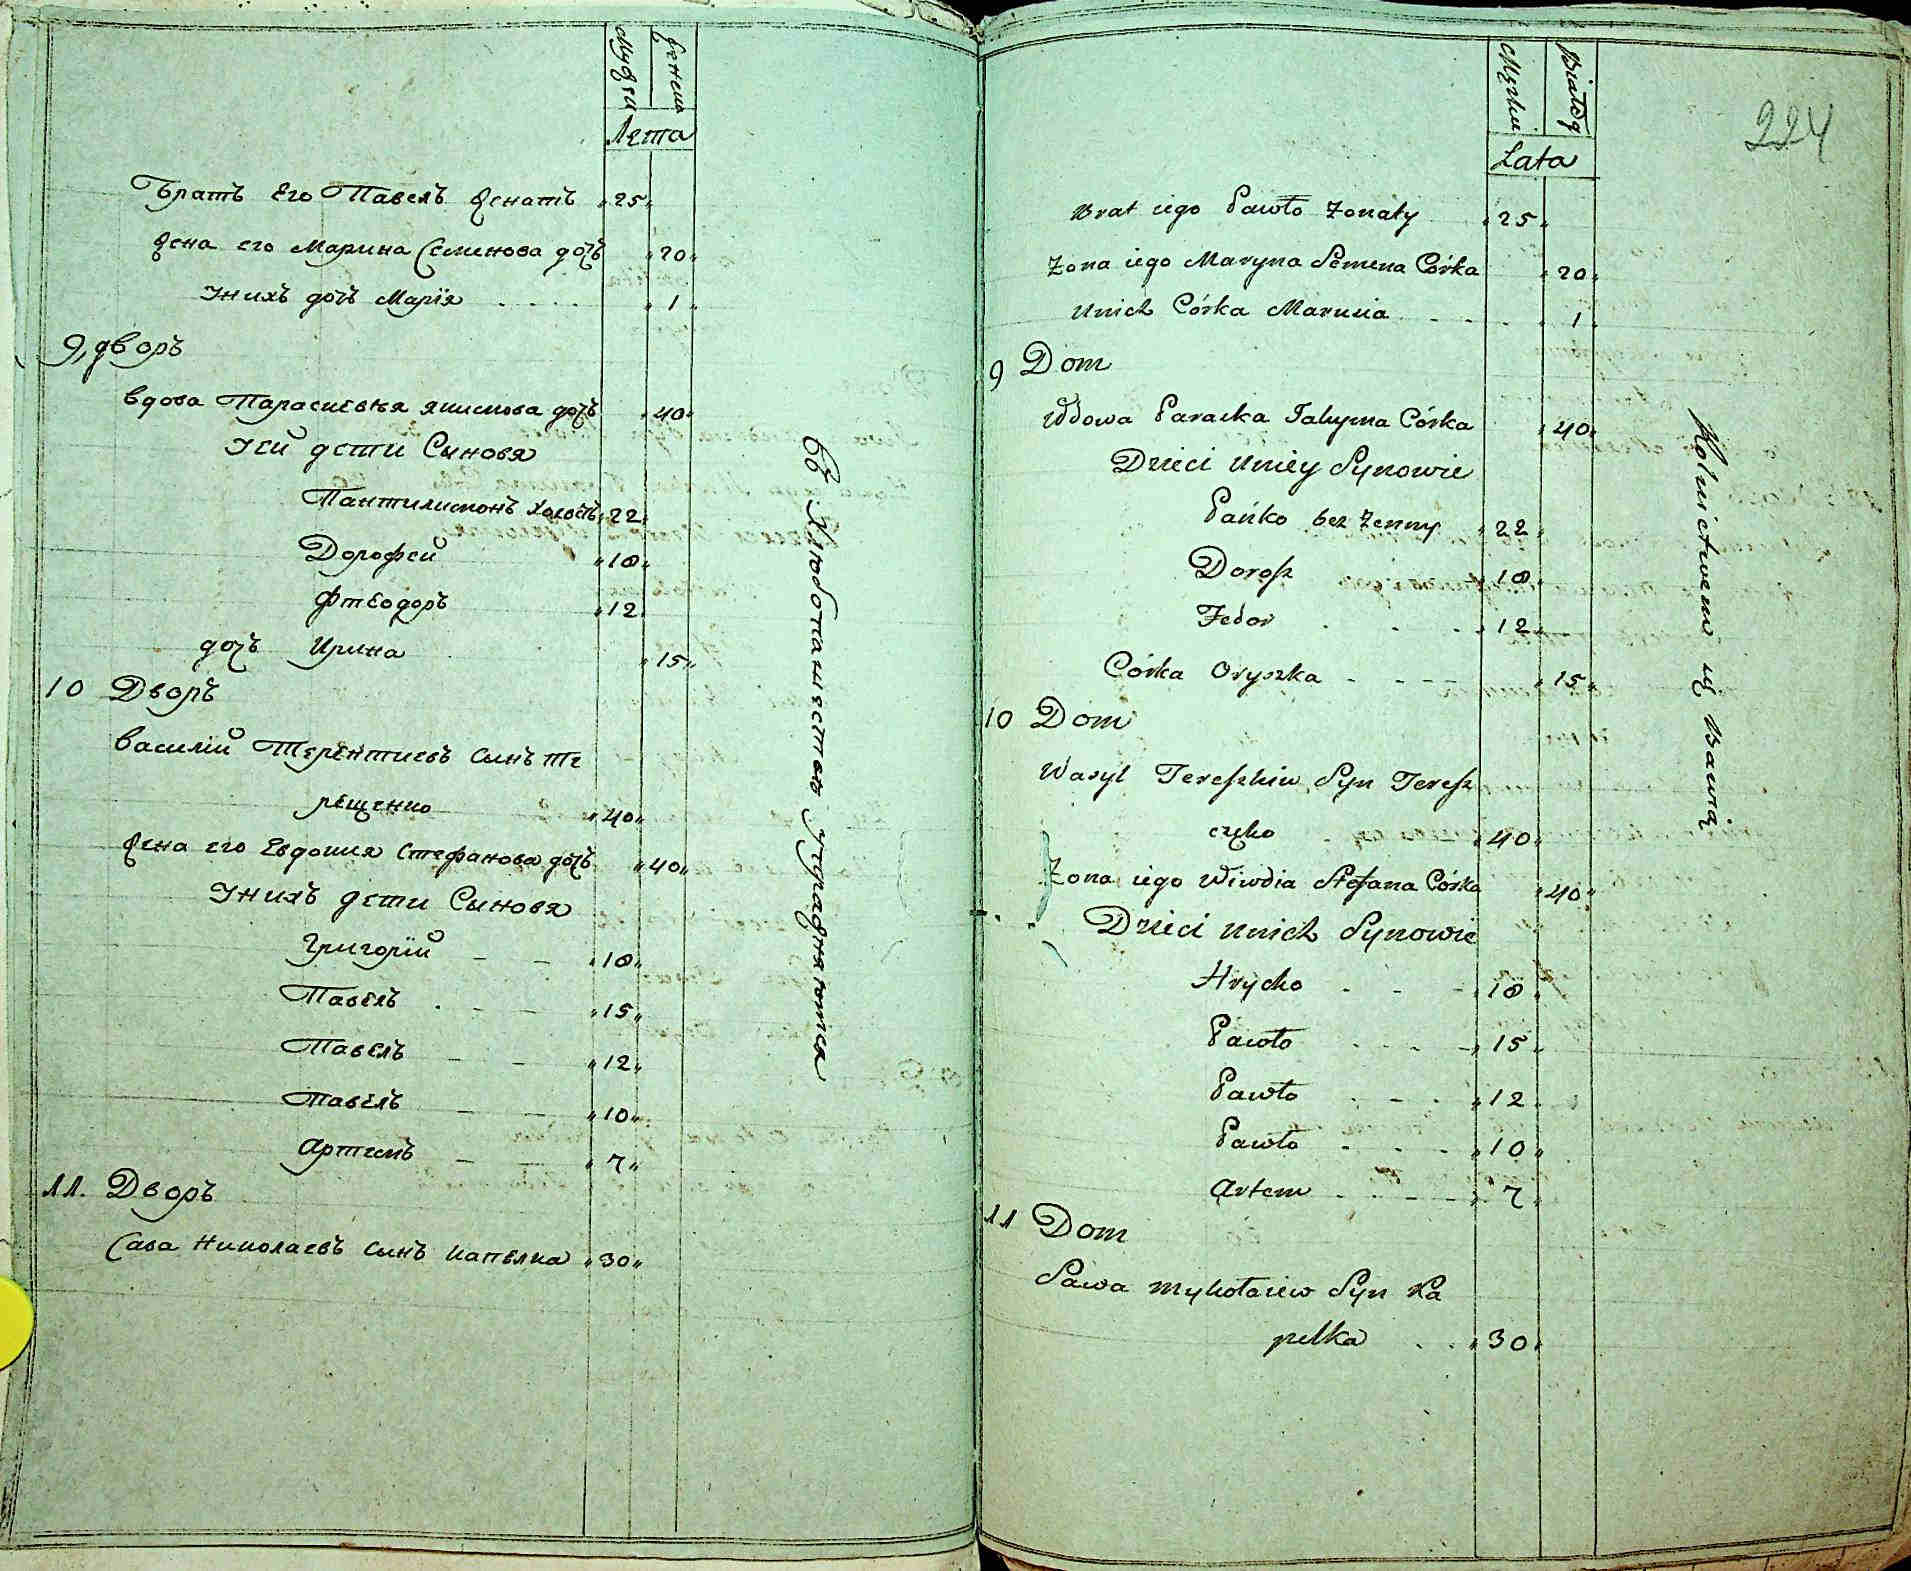 Мужеи
Женска
Лета
Братъ Его Павелъ Женатъ „25„
Жена его Марина Семенова дочъ „20„
Унихъ дочъ Марія „1„
9, дворъ
вдова Парасиевия Якимова дочъ „40„
Уей дети Синовя
Пантилимонъ холостъ „22„
Дорофей „18„
Фтеодоръ „12„
дочъ Ирина „15„
10 Дворъ
Василий Терентиевъ синъ Те
рещенко „40„
Жена его Евдокия Стефанова дочъ „40„
Унихъ дети Синовя
Григорий „18„
Павелъ „15„
Павелъ „12„
Павелъ „10„
Артемъ „7„
11. Дворъ
Сава Николаевъ синъ Капелка „30„
Въ Хлюбопашествою упражняютися
224
Męzkie
Białeg
Lata
Brat iego Pawło żonaty „25„
Żona iego Maryna Semena Córka „20„
Unich Córka Marusia „1„
9 Dom
Wdowa Paraska Jakyma Córka „40„
Dzieci Uniey Synowie
Pańko bez Żenny „22„
Dorosz „18„
Fedor „12„
Córka Oryszka „15„
10 Dom
Wasyl Tereszkiw Syn Teresz
czko „40„
Żona iego Wiwdia Stefana Córka „40„
Dzieci Unich Synowie
Hrycko „18„
Pawło „15„
Pawło „12„
Pawło „10„
Artem „7„
11 Dom
Sawa Mykołaiew Syn Ka
pelka „30„
Rolnictwem się Bawią